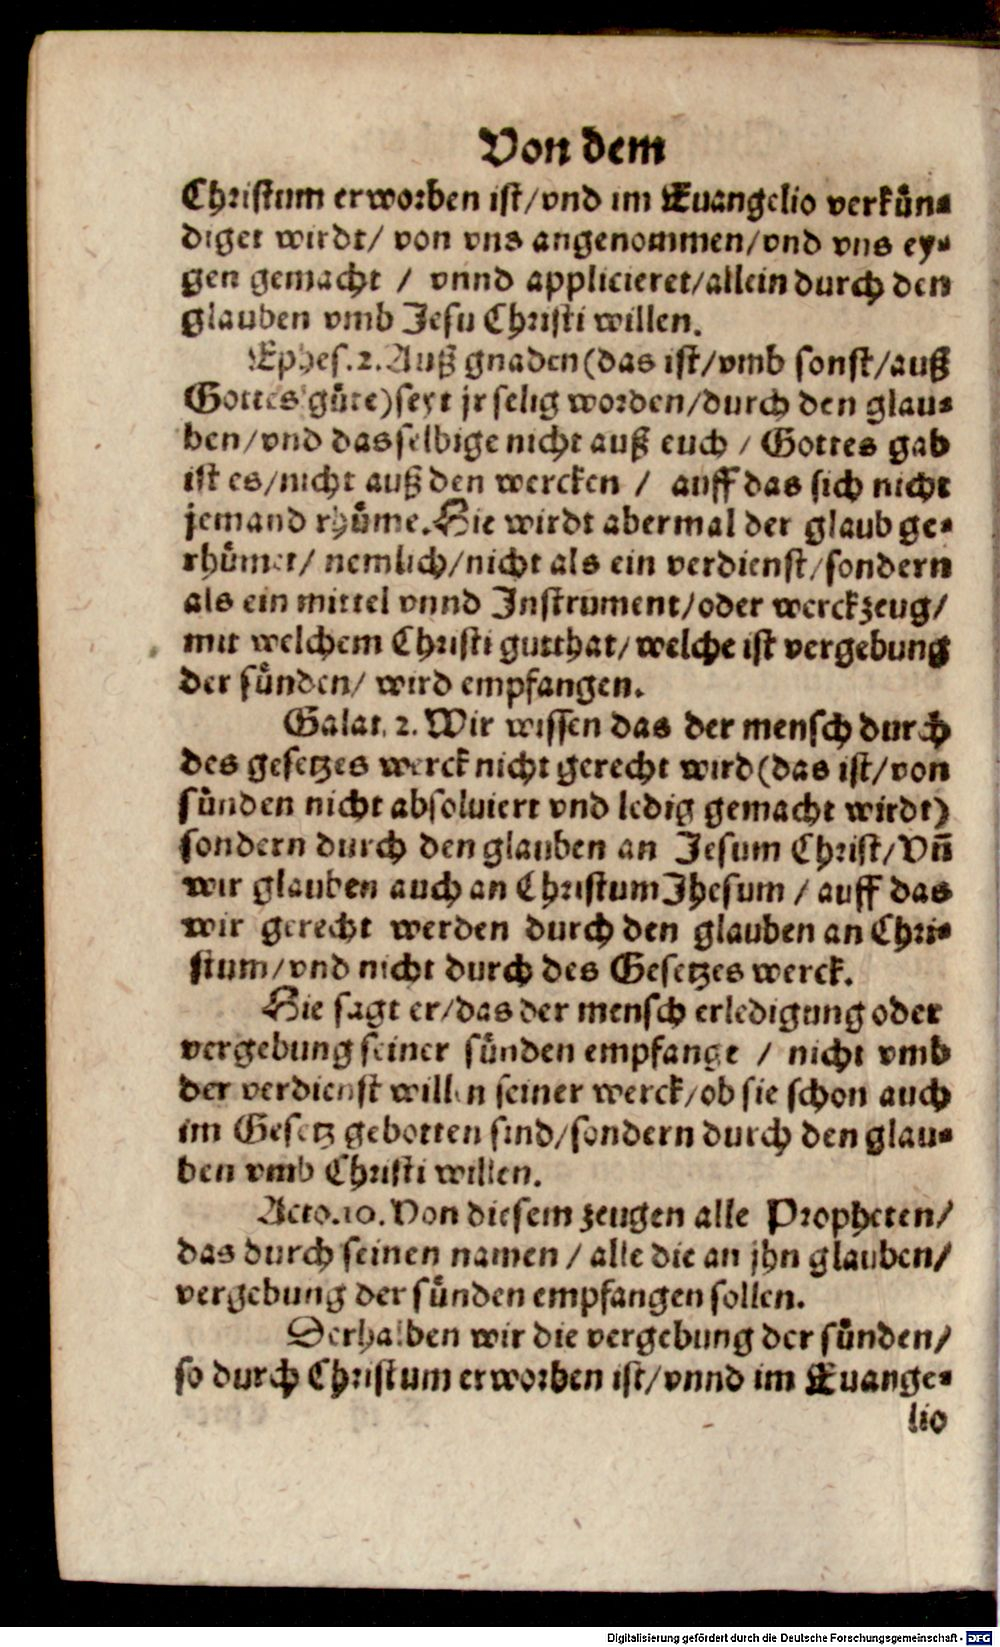 Von dem
Christum erworben ist/vnd im Euangelio verkün-
diget wirdt/ von vns angenommen/vnd vns ey-
gen gemacht / vnnd applicieret/allein durch den
glauben vmb Jesu Christi willen.
Ephes.2. Auß gnaden (das ist/vmb sonst/auß
Gottes güte) seyt jr selig worden/durch den glau-
ben/vnd dasselbige nicht auß euch / Gottes gab
ist es/nicht auß den wercken / auff das sich nicht
jemand rhüme. Hie wirdt abermal der glaub ge-
rhümet/ nemlich/nicht als ein verdienst/sondern
als ein mittel vnnd Instrument/oder werckzeug/
mit welchem Christi gutthat/welche ist vergebung
der sünden/ wird empfangen.
Galat. 2. Wir wissen das der mensch durch
des gesetzes werck nicht gerecht wird (das ist/von
sünden nicht absoluiert vnd ledig gemacht wirdt)
sondern durch den glauben an Jesum Christ/Vñ
wir glauben auch an Christum Jhesum / auff das
wir gerecht werden durch den glauben an Chri-
stum/vnd nicht durch des Gesetzes werck.
Hie sagt er/das der mensch erledigung oder
vergebung seiner sünden empfange / nicht vmb
der verdienst willen seiner werck/ob sie schon auch
im Gesetz gebotten sind/sondern durch den glau-
ben vmb Christi willen.
Acto.10. Von diesem zeugen alle Propheten/
das durch seinen namen / alle die an jhn glauben/
vergebung der sünden empfangen sollen.
Derhalben wir die vergebung der sünden/
so durch Christum erworben ist/vnnd im Euange-
lio
Digitalisierung gefördert durch die Deutsche Forschungsgemeinschaft - DFG